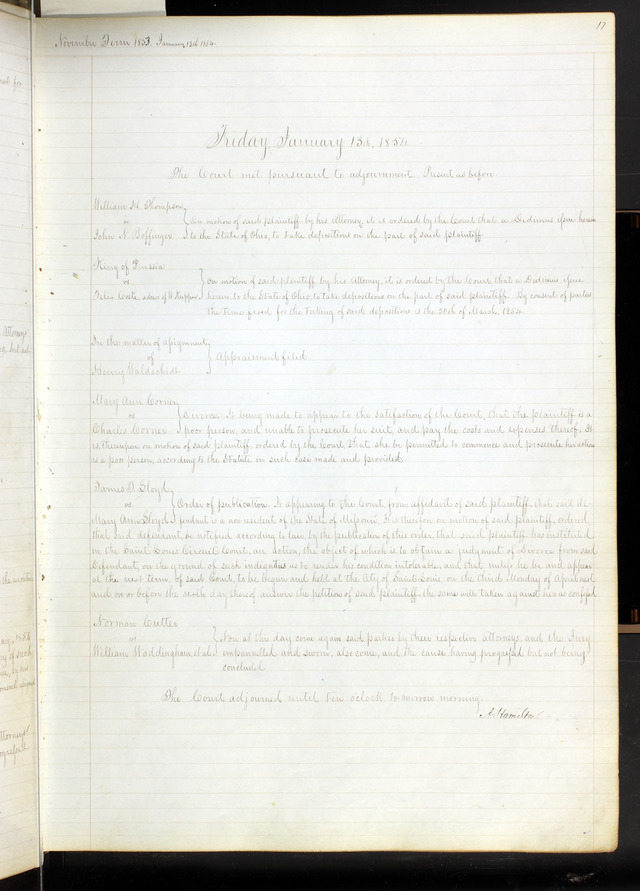 17
November Term 1853. January 13th 1854.
Friday, January 13th, 1854
The Court met pursuant to adjournment. Present as before.
William H. Thompson
vs } On motion of said plaintiff by his Attorney, it is ordered by the Court that a Dedimus issue herein
John N. Boffinger } to the State of Ohio, to take depositions on the part of said plaintiff
King of Prussia
vs } On motion of said plaintiff by his Attorney it is ordered by the Court that a Dedimus issue
Felix Coste admr of herein to the State of Ohio, to take depositions on the part of said plaintiff. By consent of parties
the time fixed for the taking of said depositions is the 20th of March, 1854.
In the matter of assignment
of } Appraisment filed.
Henry Waldschidt
Mary Ann Corner
vs } Divorce. It being made to appear to the satisfaction of the Court, that the plaintiff is a
Charles Corner poor person, and unable to prosecute her suit, and pay the costs and expenses thereof, It
is thereupon on motion of said plaintiff, ordered by the Court, that she be permitted to commence and prosecute her action
as a poor person, according to the Statute in such case made and provided.
James D. Lloyd
vs } Order of publication. It appearing to the Court from affidavit of said plaintiff that said de-
Mary Ann Lloyd fendant is a non resident of the State of Missouri, It is thereon on motion of said plaintiff, ordered,
that said defendant be notified according to law, by the publication of this order, that said plaintiff has instituted
in the Saint Louis Circuit Court, an action, the object of which is to obtain a judgment of divorce from said
defendant, on the ground of such indignities as to render his condition intolerable, and that unless she be and appear
at the next term of said Court, to be begun and held at the City of Saint Louis, on the third Monday of April next
and on or before the sixth day thereof answer the petition of said plaintiff, the same will be taken against her as confessed
Norman Cutter
vs } Now at this day come again said parties by their respective attorneys, and the Jury
William Waddingham et als. empannelled and sworn, also come, and the cause having progressed but not being
concluded
The Court adjourned until ten o'clock to-morrow morning.
A. Hamilton